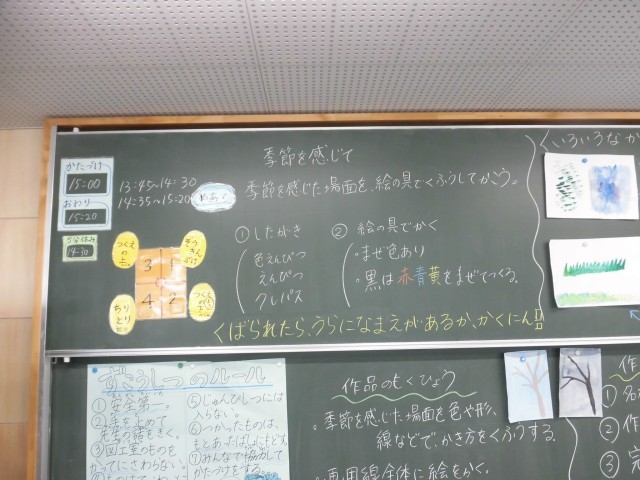 季節を感じて
いろいろなか
かたづけ
15:00
おわり
15:20
5分休み
14:30
13:45〜14:30
14:35〜15:20
めあて
季節を感じた場面を、絵の具でくふうしてかこう。
① したがき
色えんぴつ
えんぴつ
クレパス
② 絵の具でかく
・まぜ色あり
・黒は赤青黄をまぜてつくる。
つくえの上
ぞうきんがけ
ちりとり
3
4
くばられたら、うらになまえがあるか、かくにん!!
ずこうしつのルール
①安全第一。
②手を止めて
先生の話をきく。
③図工室のものを
かってにさわらない。
⑤じゅんびしつには
入らない。
⑥つかったものは、
もとあったばしょにもどす。
⑦みんなで協力して
かたづけをする。
作品のもくひょう
・季節を感じた場面を色や形、
線などで、かき方をくふうする。
・画用線全体に絵をかく。
作
①名
②作
③完